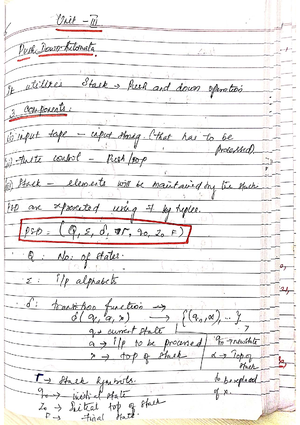 Unit - III
Push Down Automata
It utilizes Stack → Push and down operation
3 components:
(i) input tape - input string. (that has to be
processed)
(ii) finite control - Push/pop
(iii) Stack - elements will be maintained by the stack
PDA are represented using 7 tuples.
PDA = (Q, Σ, δ, Γ, q0, Z0 F)
Q : No. of states.
Σ : i/p alphabets
δ : transition function →
δ(q, a, x) → {(qn, α), ...}
q → current state
a → i/p to be processed
x → top of stack
α → Top of
stack
to be replaced
of x.
Γ → Stack Symbols.
q0 → initial state
Z0 → Initial top of stack
F → final state.